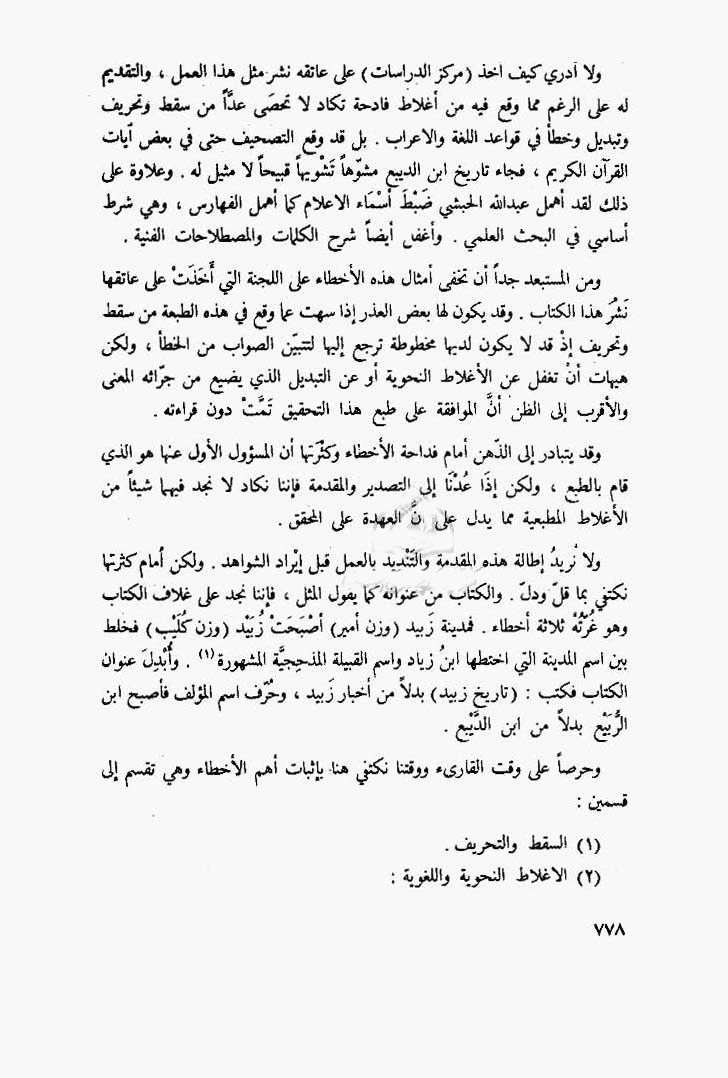 ولا أدري كيف أخذ (مركز الدراسات) على عاتقه نشر مثل هذا العمل ، والتقديم
له على الرغم مما وقع فيه من أغلاط فادحة تكاد لا تحصَى عدّاً من سقط وتحريف
وتبديل وخطأ في قواعد اللغة والاعراب . بل قد وقع التصحيف حتى في بعض آيات
القرآن الكريم ، فجاء تاريخ ابن الديبع مشوّهاً تَشْويهاً قبيحاً لا مثيل له . وعلاوة على
ذلك لقد أهمل عبدالله الحبشي ضَبْطَ أسْمَاء الاعلام كما أهمل الفهارس ، وهي شرط
أساسي في البحث العلمي . وأغفل أيضاً شرح الكلمات والمصطلاحات الفنية .
ومن المستبعد جداً أن تخفى أمثال هذه الأخطاء على اللجنة التي أَخَذَتْ على عاتقها
نَشْرَ هذا الكتاب . وقد يكون لها بعض العذر إذا سهت عما وقع في هذه الطبعة من سقط
وتحريف إذْ قد لا يكون لديها مخطوطة ترجع إليها لتتبيّن الصواب من الخطأ ، ولكن
هيهات أنْ تغفل عن الأغلاط النحوية أو عن التبديل الذي يضيع من جرّائه المعنى
والأقرب إلى الظن أنَّ الموافقة على طبع هذا التحقيق تَمَّتْ دون قراءته .
وقد يتبادر إلى الذّهن أمام فداحة الأخطاء وكثْرَتها أن المسؤول الأول عنها هو الذي
قام بالطبع ، ولكن إذَا عُدْنَا إلى التصدير والمقدمة فإننا نكاد لا نجد فيهما شيئاً من
الأغلاط المطبعية مما يدل على نَّ العهدة على المحقق .
ولا نُريدُ إطالة هذه المقدمة والتَنْديد بالعمل قبل إيْراد الشواهد . ولكن أمام كثرتها
نكتفي بما قلّ ودلّ . والكتاب من عنوانه كما يقول المثل ، فإننا نجد على غلاف الكتاب
وهو غُرّتُهْ ثلاثة أخطاء . فمدينة زَبيد (وزن أمير) أصْبَحَتْ زُبَيْد (وزن كُلَيْب) فخلط
بين اسم المدينة التي اختطها ابنُ زياد واسم القبيلة المذحِجيَّة المشهورة (١) . وأُبْدِلَ عنوان
الكتاب فكتب : (تاريخ زبيد) بدلاً من أخبار زَبيد ، وحُرّف اسم المؤلف فأصبح ابن
الرُّبَيْع بدلاً من ابن الدَّيْبع .
وحرصاً على وقت القارىء ووقتنا نكتفي هنا بإثبات أهم الأخطاء وهي تقسم إلى
قسمين :
(١) السقط والتحريف .
(٢) الاغلاط النحوية واللغوية :
٧٧٨